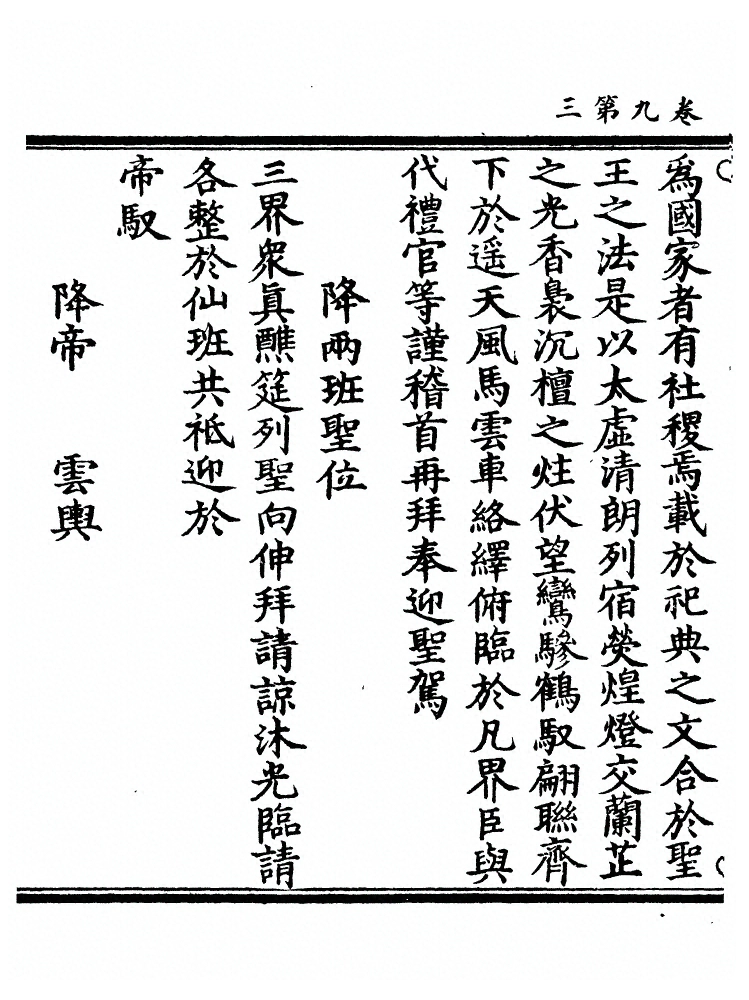 卷九第三
爲國家者有社稷焉載於祀典之文合於聖
王之法是以太虛清朗列宿熒煌燈交蘭芷
之光香裊沉檀之炷伏望鸞驂鶴馭翩聯齊
下於遥天風馬雲車絡繹俯臨於凡界臣與
代禮官等謹稽首再拜奉迎聖駕
降兩班聖位
三界衆眞醮筵列聖向伸拜請諒沐光臨請
各整於仙班共祗迎於
帝馭
降帝 雲輿